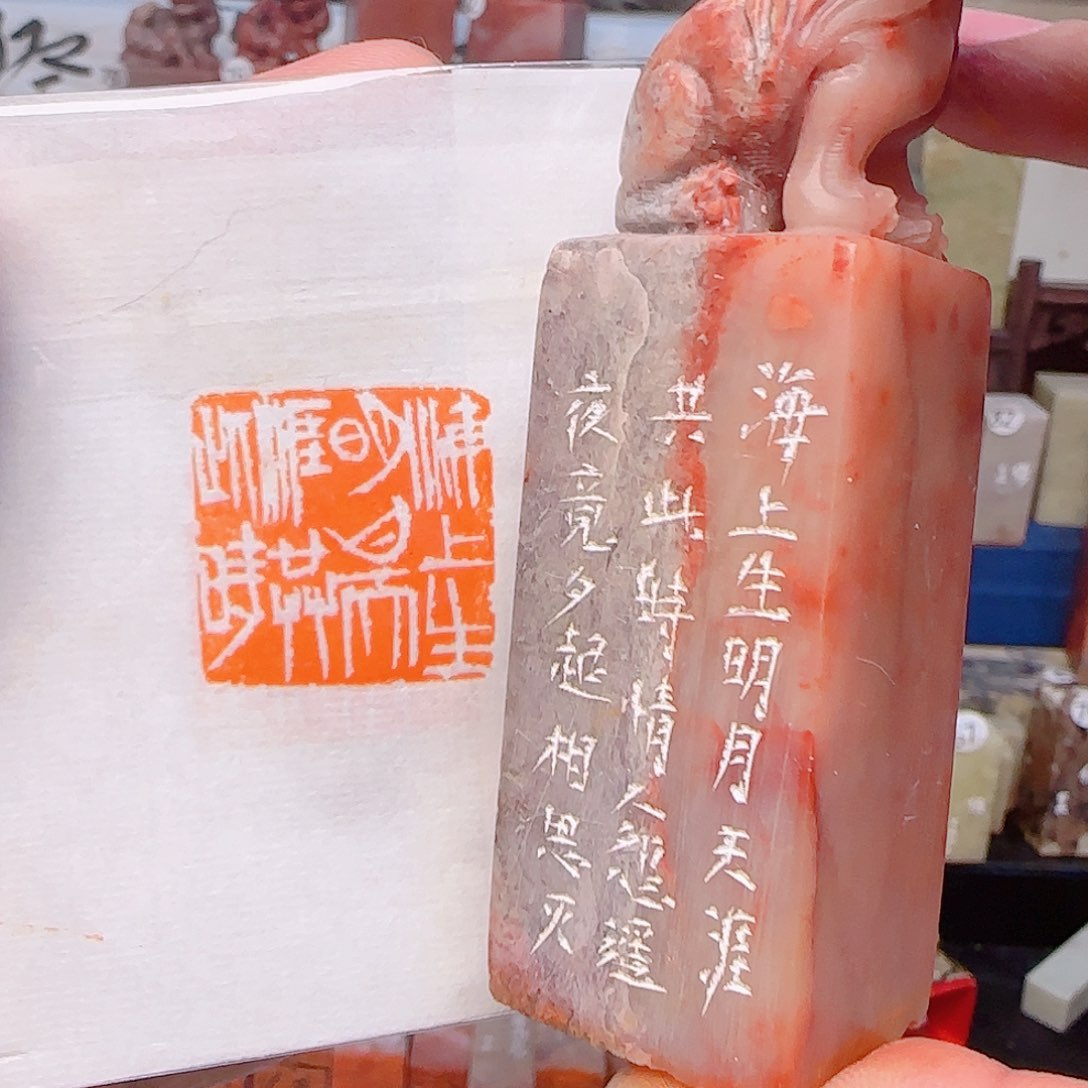 海上生明月天涯
共此時情人怨遥
夜竟夕起相思灭
海上生
明月天
涯共
此時